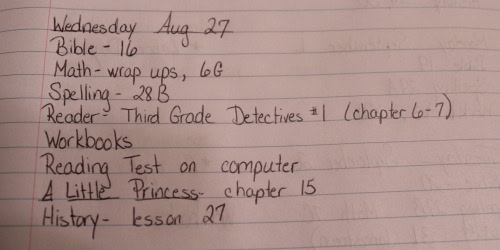 Wednesday Aug 27
Bible - 16
Math - wrap ups, 6G
Spelling - 28B
Reader - Third Grade Detectives #1 (chapter 6-7)
Workbooks
Reading Test on computer
A Little Princess - chapter 15
History - lesson 27